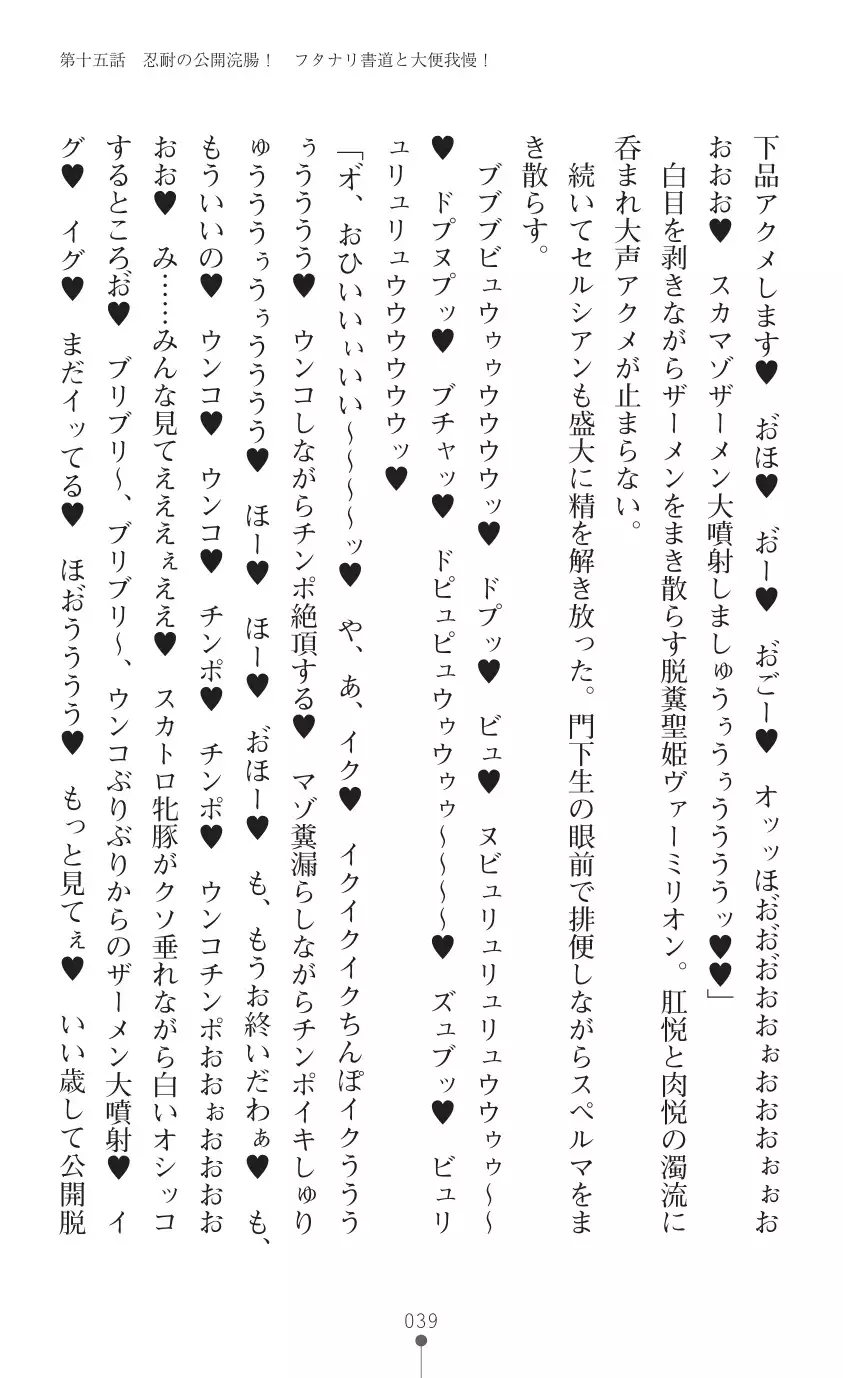 第十五話　忍耐の公開浣腸！　フタナリ書道と大便我慢！
下品アクメします♥　お゛ほ♥　お゛ー♥　お゛ごー♥　オッッほお゛お゛お゛おおぉおおおぉぉお
おおお♥　スカマゾザーメン大噴射しましゅうぅうぅううううッ♥♥」
　白目を剥きながらザーメンをまき散らす脱糞聖姫ヴァーミリオン。肛悦と肉悦の濁流に
呑まれ大声アクメが止まらない。
　続いてセルシアンも盛大に精を解き放った。門下生の眼前で排便しながらスペルマをま
き散らす。
　ブブブビュウゥゥウウウウッ♥　ドプッ♥　ビュ♥　ヌビュリュリュリュウウゥゥ～～
♥　ドプヌプッ♥　ブチャッ♥　ドピュピュウゥウゥゥ～～～～♥　ズュブッ♥　ビュリ
ュリュリュウウウウウウッ♥
「オ゛、おひいいぃいい～～～～ッ♥　や、あ、イク♥　イクイクイクちんぽイクううう
ぅうううう♥　ウンコしながらチンポ絶頂する♥　マゾ糞漏らしながらチンポイキしゅり
ゅうううぅうぅうううう♥　ほー♥　ほー♥　お゛ほー♥　も、もうお終いだわぁ♥　も、
もういいの♥　ウンコ♥　ウンコ♥　チンポ♥　チンポ♥　ウンコチンポおおぉおおおお
おお♥　み……みんな見てえええぇええ♥　スカトロ牝豚がクソ垂れながら白いオシッコ
するところお゛♥　ブリブリ～、ブリブリ～、ウンコぶりぶりからのザーメン大噴射♥　イ
グ♥　イグ♥　まだイッてる♥　ほお゛うううう♥　もっと見てぇ♥　いい歳して公開脱
039